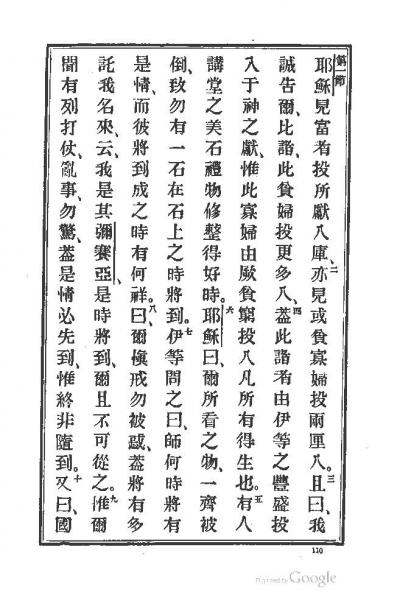 第一節
耶穌見富者投所獻入庫、二亦見或貧寡婦投兩厘入。三且曰、我
誠告爾、比諸、此貧婦投更多入、四蓋此諸者由伊等之豐盛投
入于神之獻、惟此寡婦由厥貧窮投入凡所有得生也。五有人
講堂之美石禮物修整得好時。六耶穌曰、爾所看之物、一齊被
倒、致勿有一石在石上之時將到。七伊等問之曰、師何時將有
是情、而彼將到成之時有何祥。八曰、爾慎戒勿被惑、蓋將有多
託我名來、云、我是其彌賽亞、是時將到、爾且不可從之。九惟爾
聞有列打仗、亂事、勿驚、蓋是情必先到、惟終非隨到。十又曰、國
110
Digitized by Google